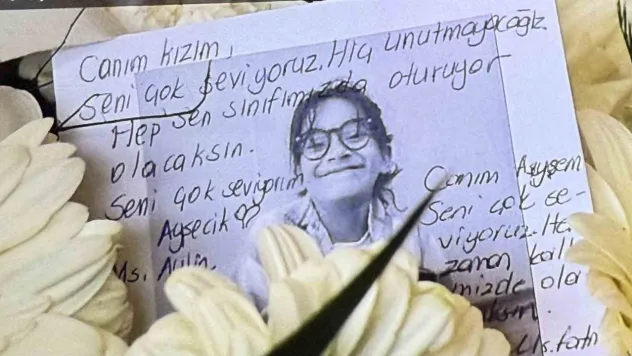 Canım kızım,
Seni çok seviyoruz. Hiç unutmayacağız.
Hep sen sınıfımızda oturuyor
olacaksın.
Seni çok seviyorum
Ayşecik
Ms. Aylin
Canım Ayşem
Seni çok se-
viyoruz. He
zaman kal
mizde ola
ksın.